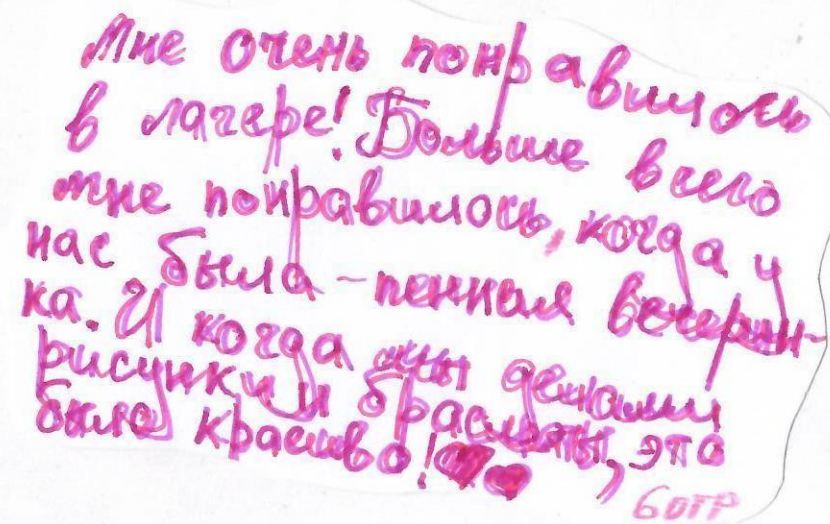 Мне очень понравилось
в лагере! Больше всего
мне понравилось, когда у
нас была - пенная вечерин-
ка. И когда мы делали
рисунки и браслеты, это
было красиво!
6 отр